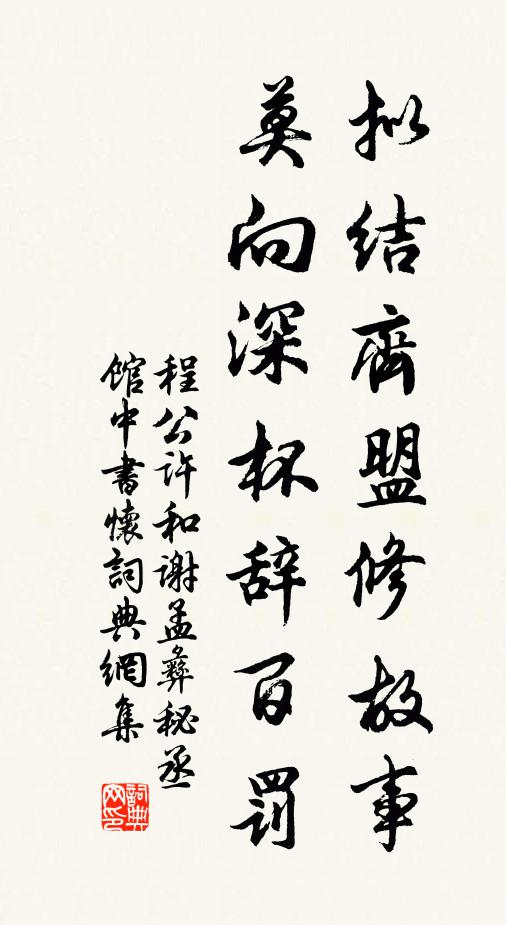 拟结齊盟修故事
莫向深杯辞百罰
程公许和谢孟彝秘丞
馆中書懷詞典網集
詞典网印